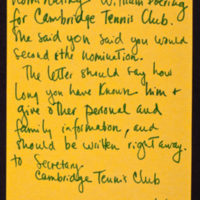 nominating William Doering
for Cambridge Tennis Club.
She said you said you would
second the nomination.
The letter should say how
long you have known him &
give other personal and
family information, and
should be written right away.
to Secretary
Cambridge Tennis Club